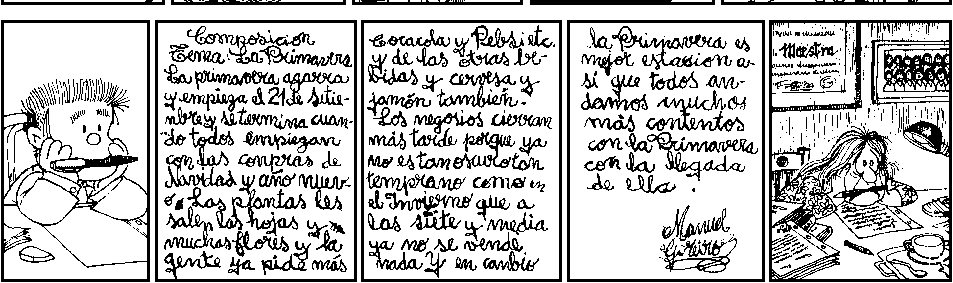 Composicion
Tema: La Primavera
La primavera agarra
y empieza el 21 de Setie-
mbre y se termina cuan-
do todos empiezan
con las conpras de
Navidad y año nuev-
o. Las plantas les
salen las hojas y
muchas flores y la
gente ya pide más
Cocacola y Pebsi etc.
y de las otras be-
bisas y cervesa y
jamón también.
Los negosios cierran
más tarde porque ya
no está tan
temprano como en
el Invierno que a
las siete y media
ya no se vende
nada Y en canbio
la Primavera es
mejor estasion a-
si que todos an-
damos muchos
más contentos
con la Primavera
con la llegada
de ella.
Manuel
Goreiro
Maestra